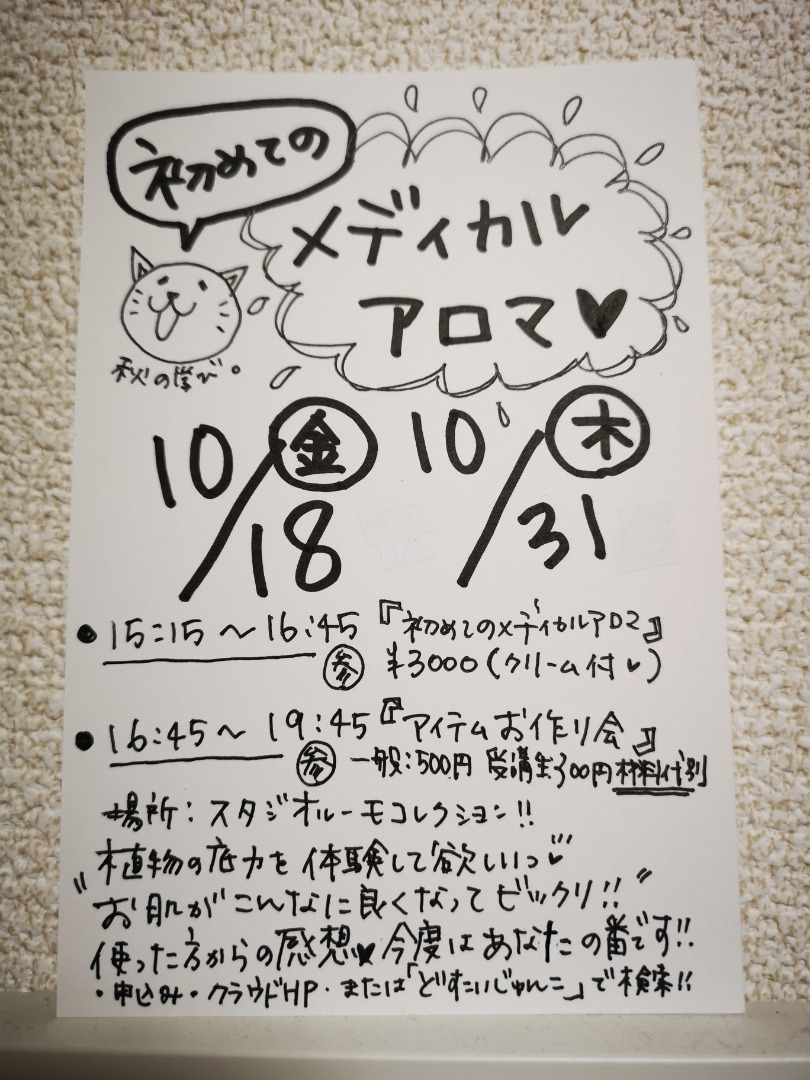 初めての
メディカル
アロマ♥
秋の学び。
10/18 金
10/31 木
● 15:15〜16:45『初めてのメディカルアロマ』
参 ¥3000(クリーム付♥)
● 16:45〜19:45『アイテムお作り会』
参 一般:500円 受講生300円 材料代別
場所:スタジオルーモコレクション!!
植物の底力を体験して欲しいっ♥
"お肌がこんなに良くなってビックリ!!"
使った方からの感想♥今度はあなたの番です!!
・申込み・クラウドHP・または「どすこいじゅんこ」で検索!!